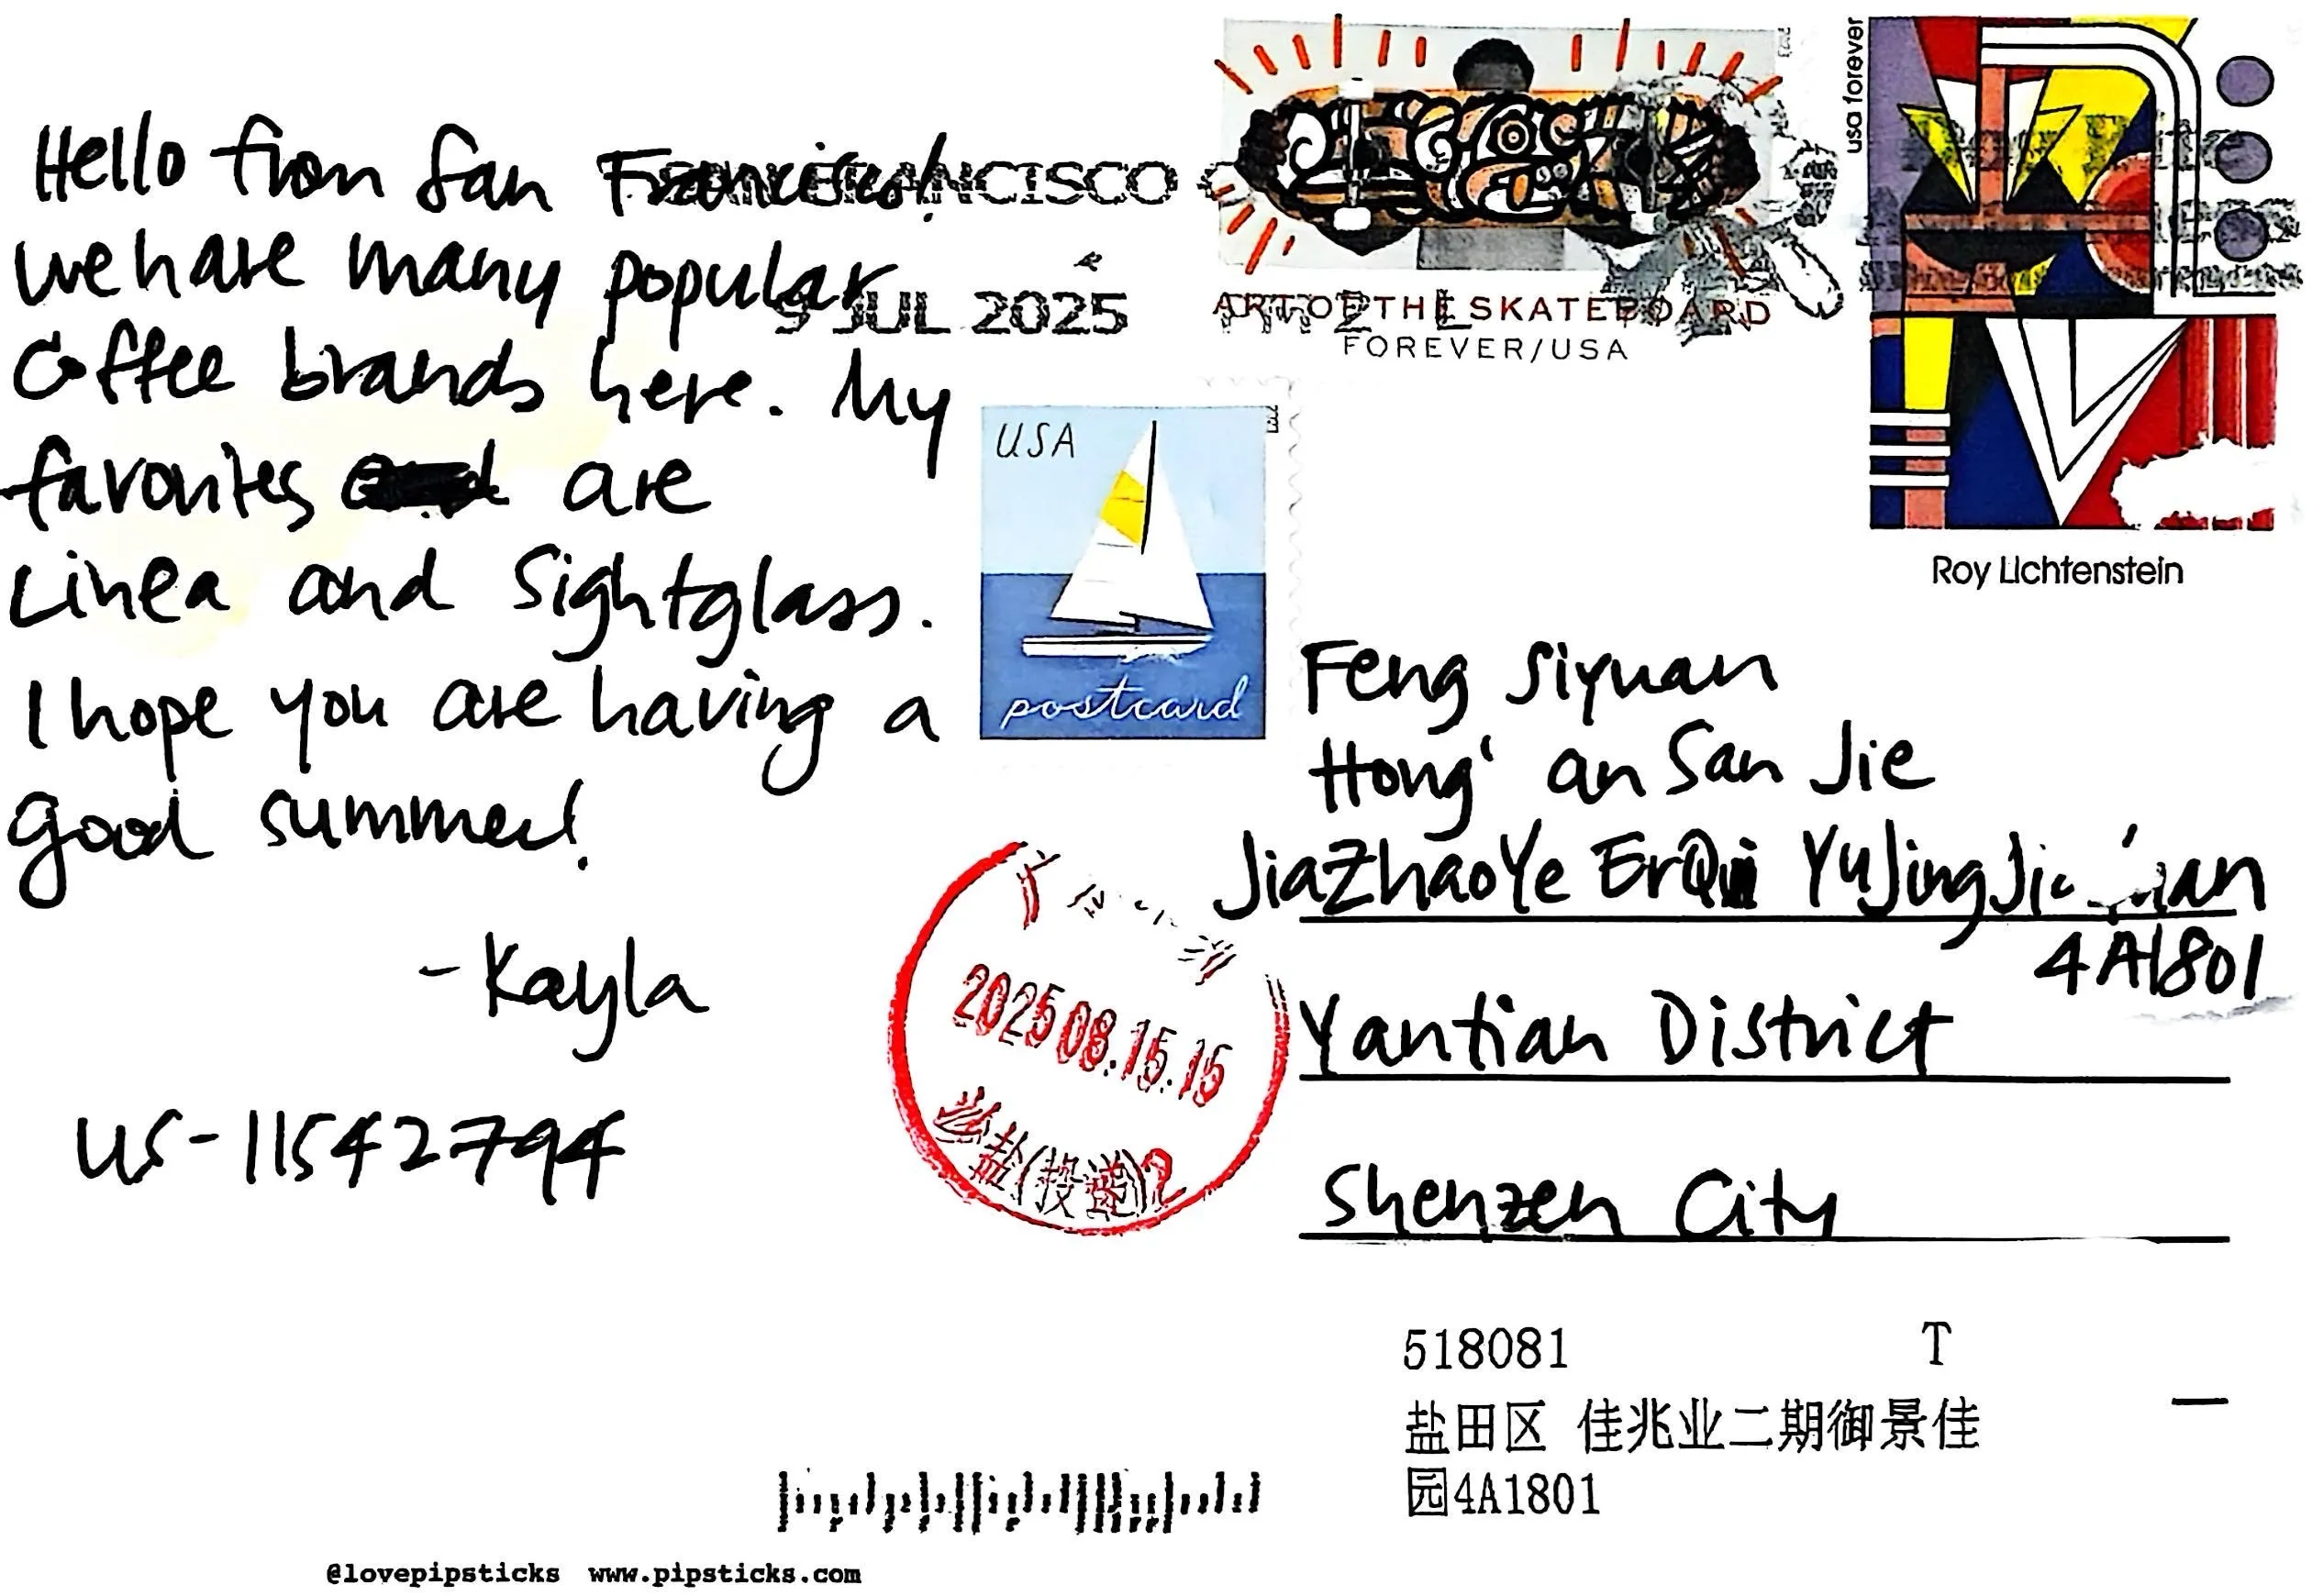 Hello from San Francisco!
We have many popular
Coffee brands here. My
favorites are
Linea and Sightglass.
I hope you are having a
good summer!
-Kayla
US-11542794
SAN FRANCISCO
9 JUL 2025
ART OF THE SKATEBOARD
FOREVER/USA
usa forever
Roy Lichtenstein
USA
postcard
Feng Siyuan
Hong' an San Jie
JiaZhaoYe ErQi YuJingJia
4A1801
Yantian District
Shenzen City
2025 08.15.15
盐(投递)2
518081 T
盐田区 佳兆业二期御景佳
园4A1801
@lovepipsticks www.pipsticks.com